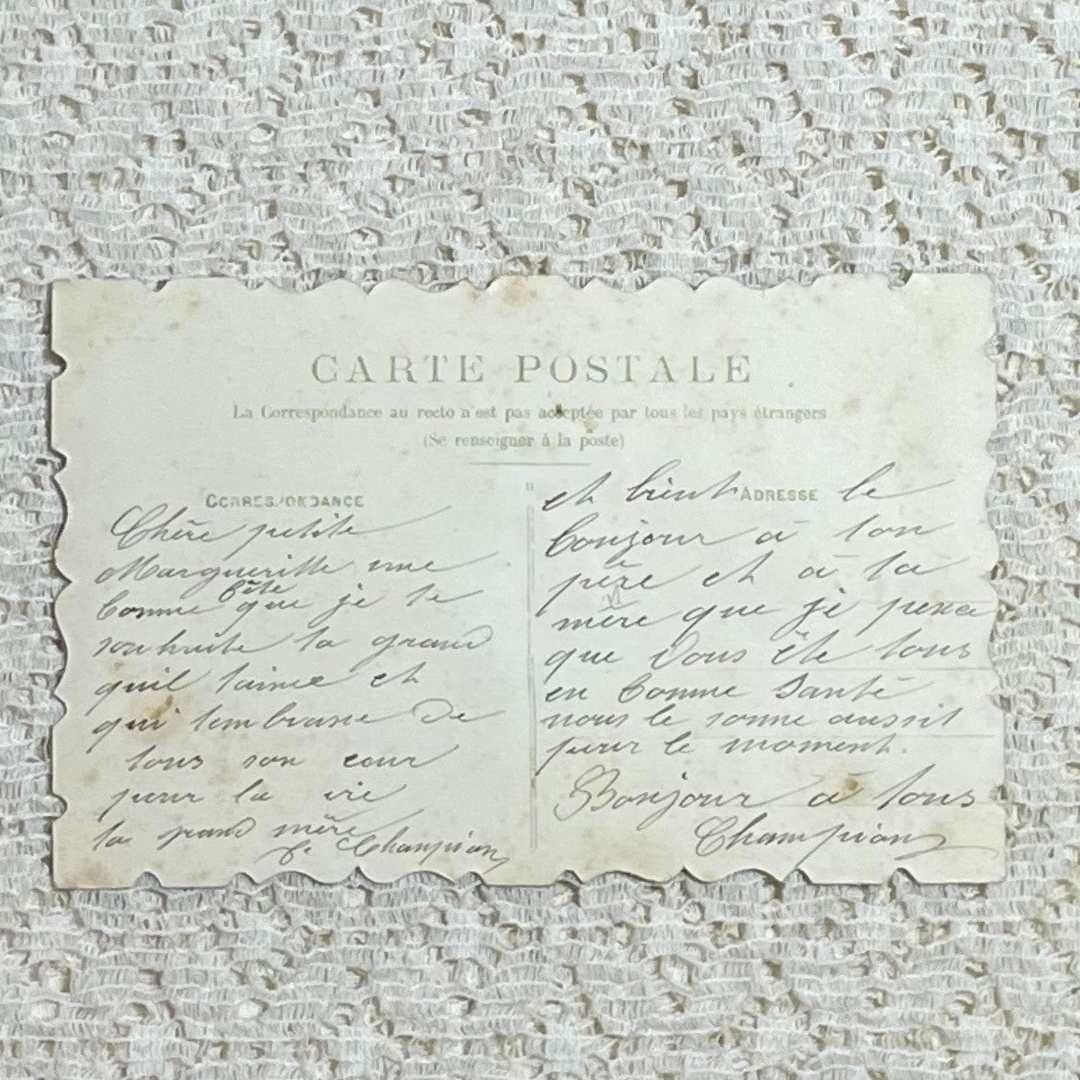 CARTE POSTALE
La Correspondance au recto n'est pas acceptée par tous les pays étrangers
(Se renseigner à la poste)
CORRESPONDANCE
Chère petite
Margueritte une
bonne fête que je te
souhaite ta grand
quil taime et
qui tembrasse de
tous son cour
pour la vie
ta grand mère
C. Champion
ADRESSE
et bient le
bonjour a ton
père et a ta
mère que je pence
que vous ête tous
en bonne santé
nous le somme aussit
pour le moment.
Bonjour à tous
Champion